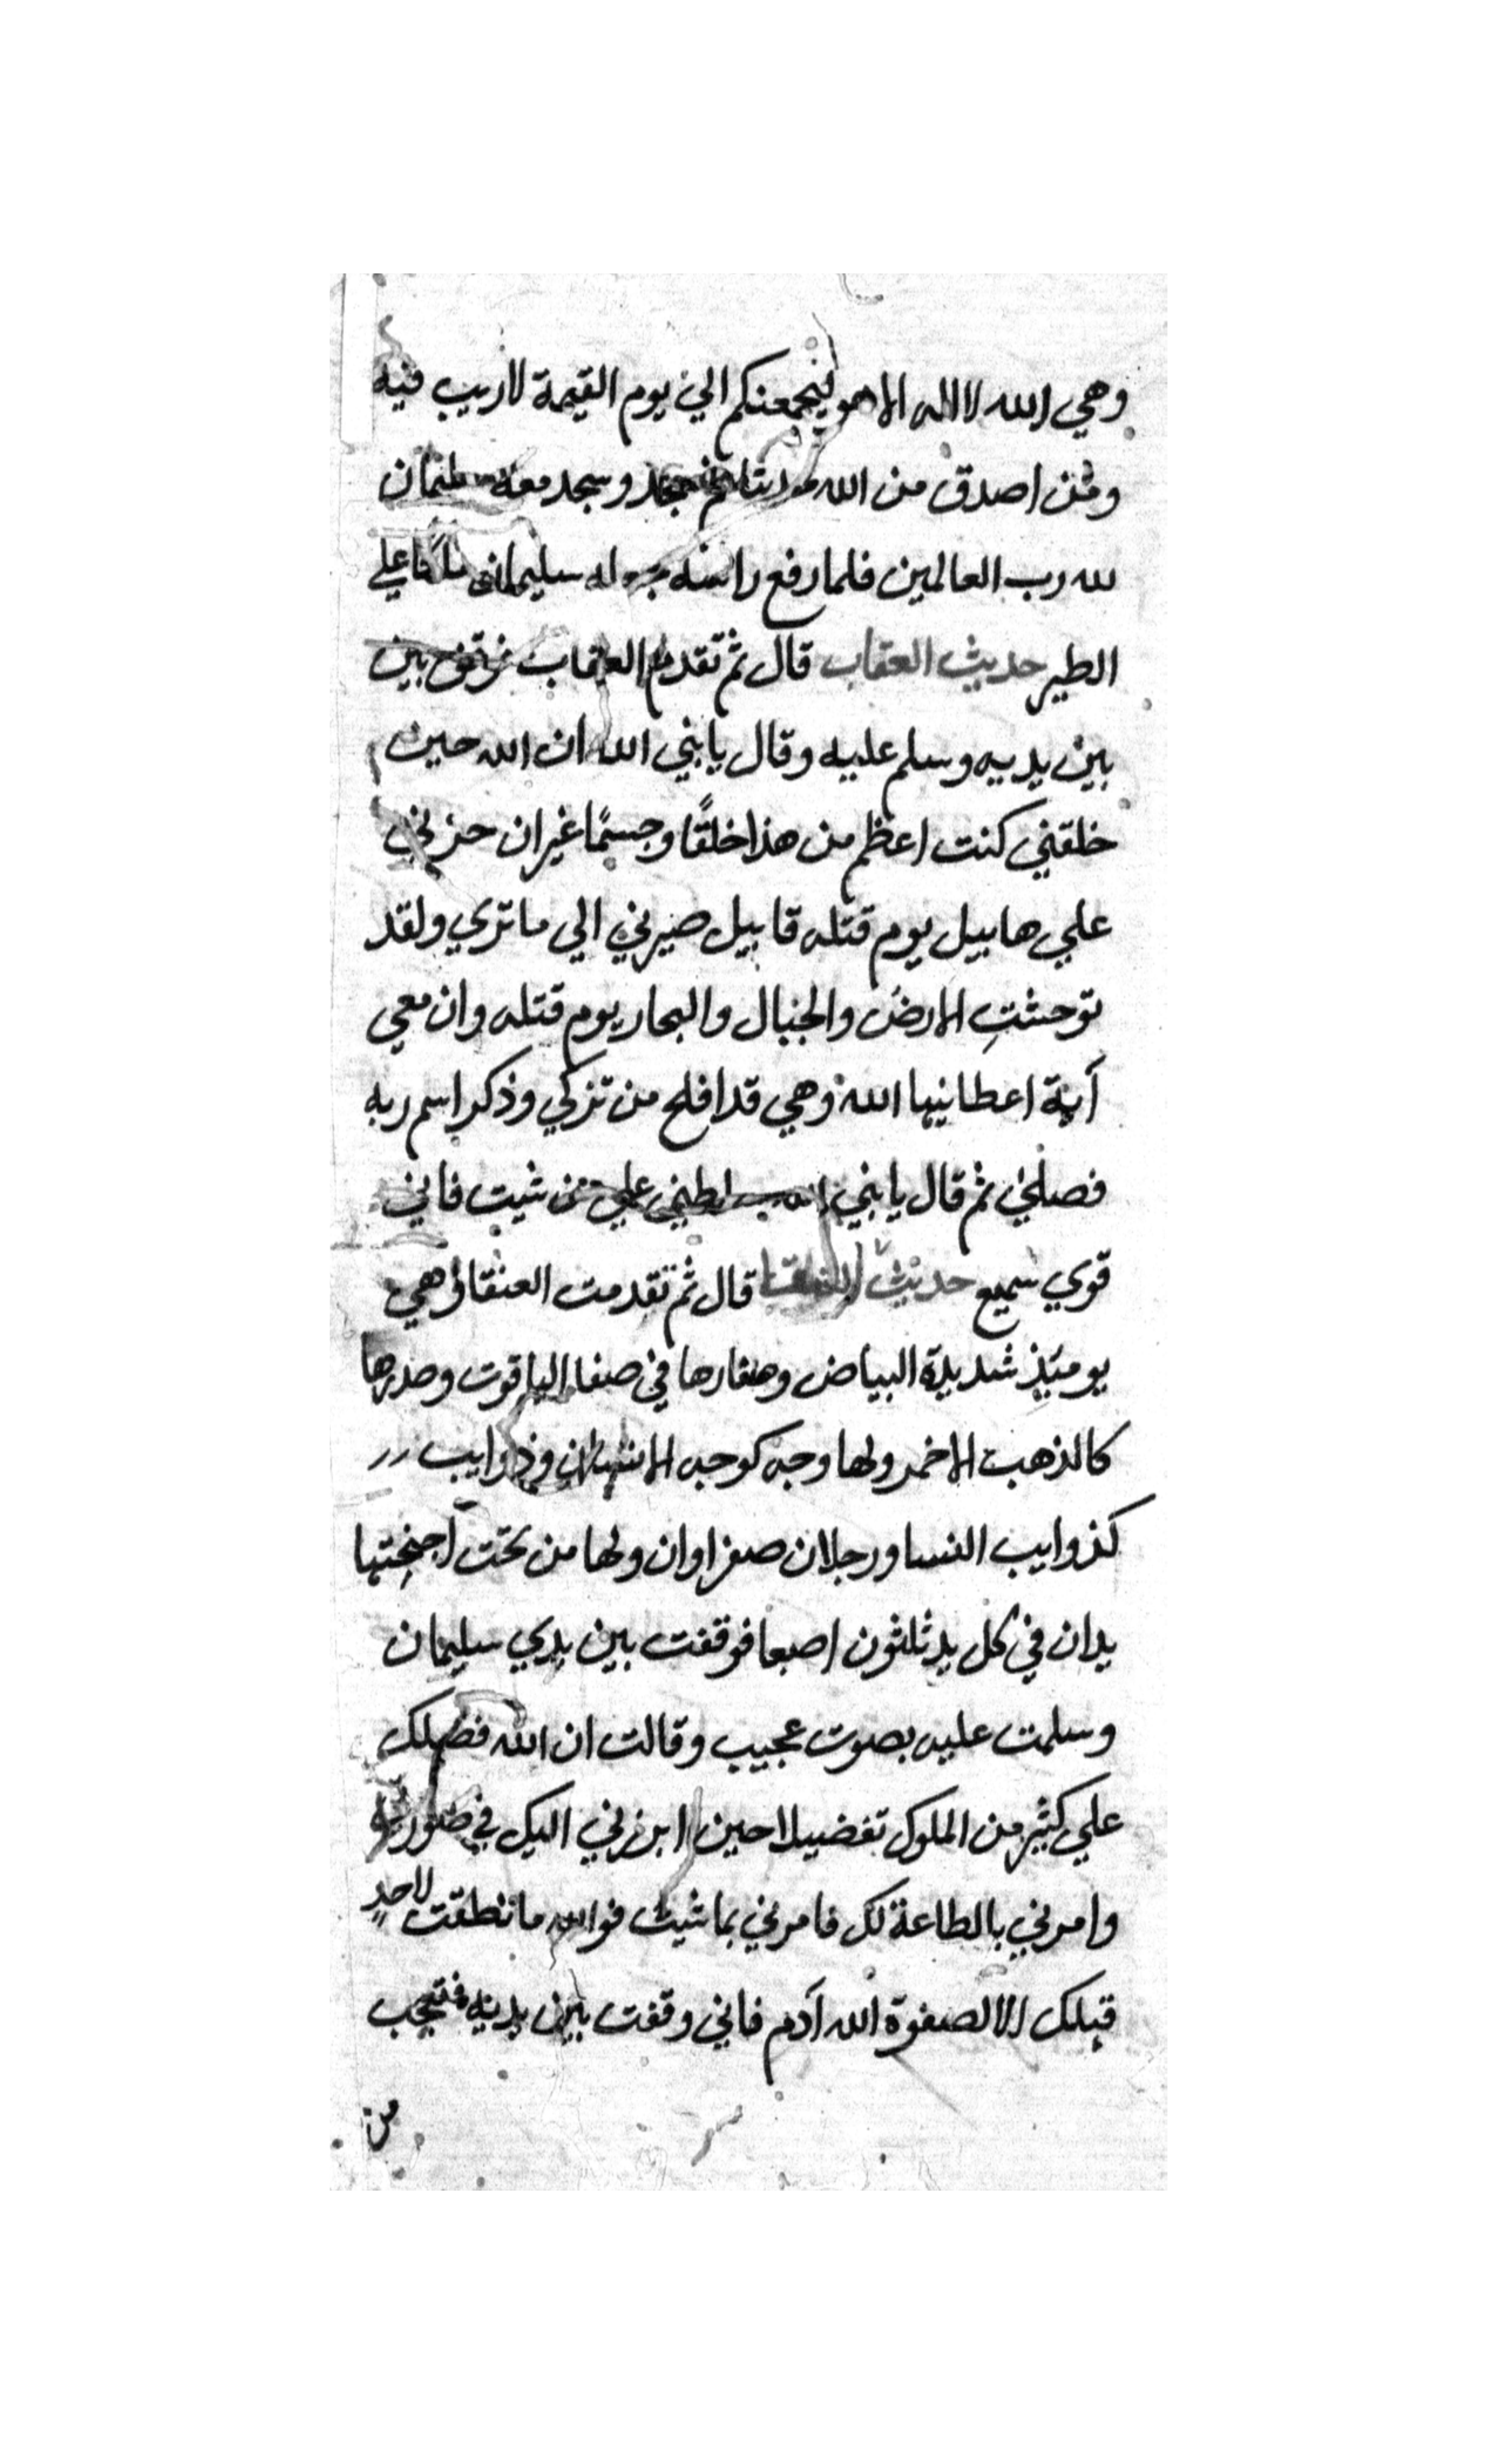 وهي الله لا اله الا هو ليجمعنكم الي يوم القيمة لاريب فيه
ومن اصدق من الله حديثا ثم سجد وسجد معه سليمان
لله رب العالمين فلما رفع راسه سليمان ملكا علي
الطير حديث العقاب قال ثم تقدم العقاب فوقف بين
بين يديه وسلم عليه وقال يا نبي الله ان الله حين
خلقني كنت اعظم من هذا خلقًا وجسمًا غير ان حزني
علي هابيل يوم قتله قابيل صيرني الي ما تري ولقد
توحشتِ الارض والجبال والبحار يوم قتله وان معي
آية اعطانيها الله وهي قد افلح من تزكي وذكر اسم ربه
فصلي ثم قال يا نبي الله علي من شيت فاني
قوي سميع حديث العنقا قال ثم تقدمت العنقا وهي
يوميَذٍ شديدة البياض ومنقارها في صفا الياقوت وصدرها
كالذهب الاحمر ولها وجه كوجه الانسان وذوايب
كذوايب النسا ورجلان صفراوان ولها من تحت اجنحِتها
يدان في كل يد ثلثون اصبعا فوقفت بين يدي سليمان
وسلمت عليه بصوت عجيب وقالت ان الله فضلك
علي كثير من الملوك تفضيلا حين ابرزني اليك في صورتي
وامرني بالطاعة لك فامرني بما شيت فوالله ما نطقت لاحدٍ
قبلك الا لصفوة الله آدم فاني وقفت بين يديه فتعجب
من